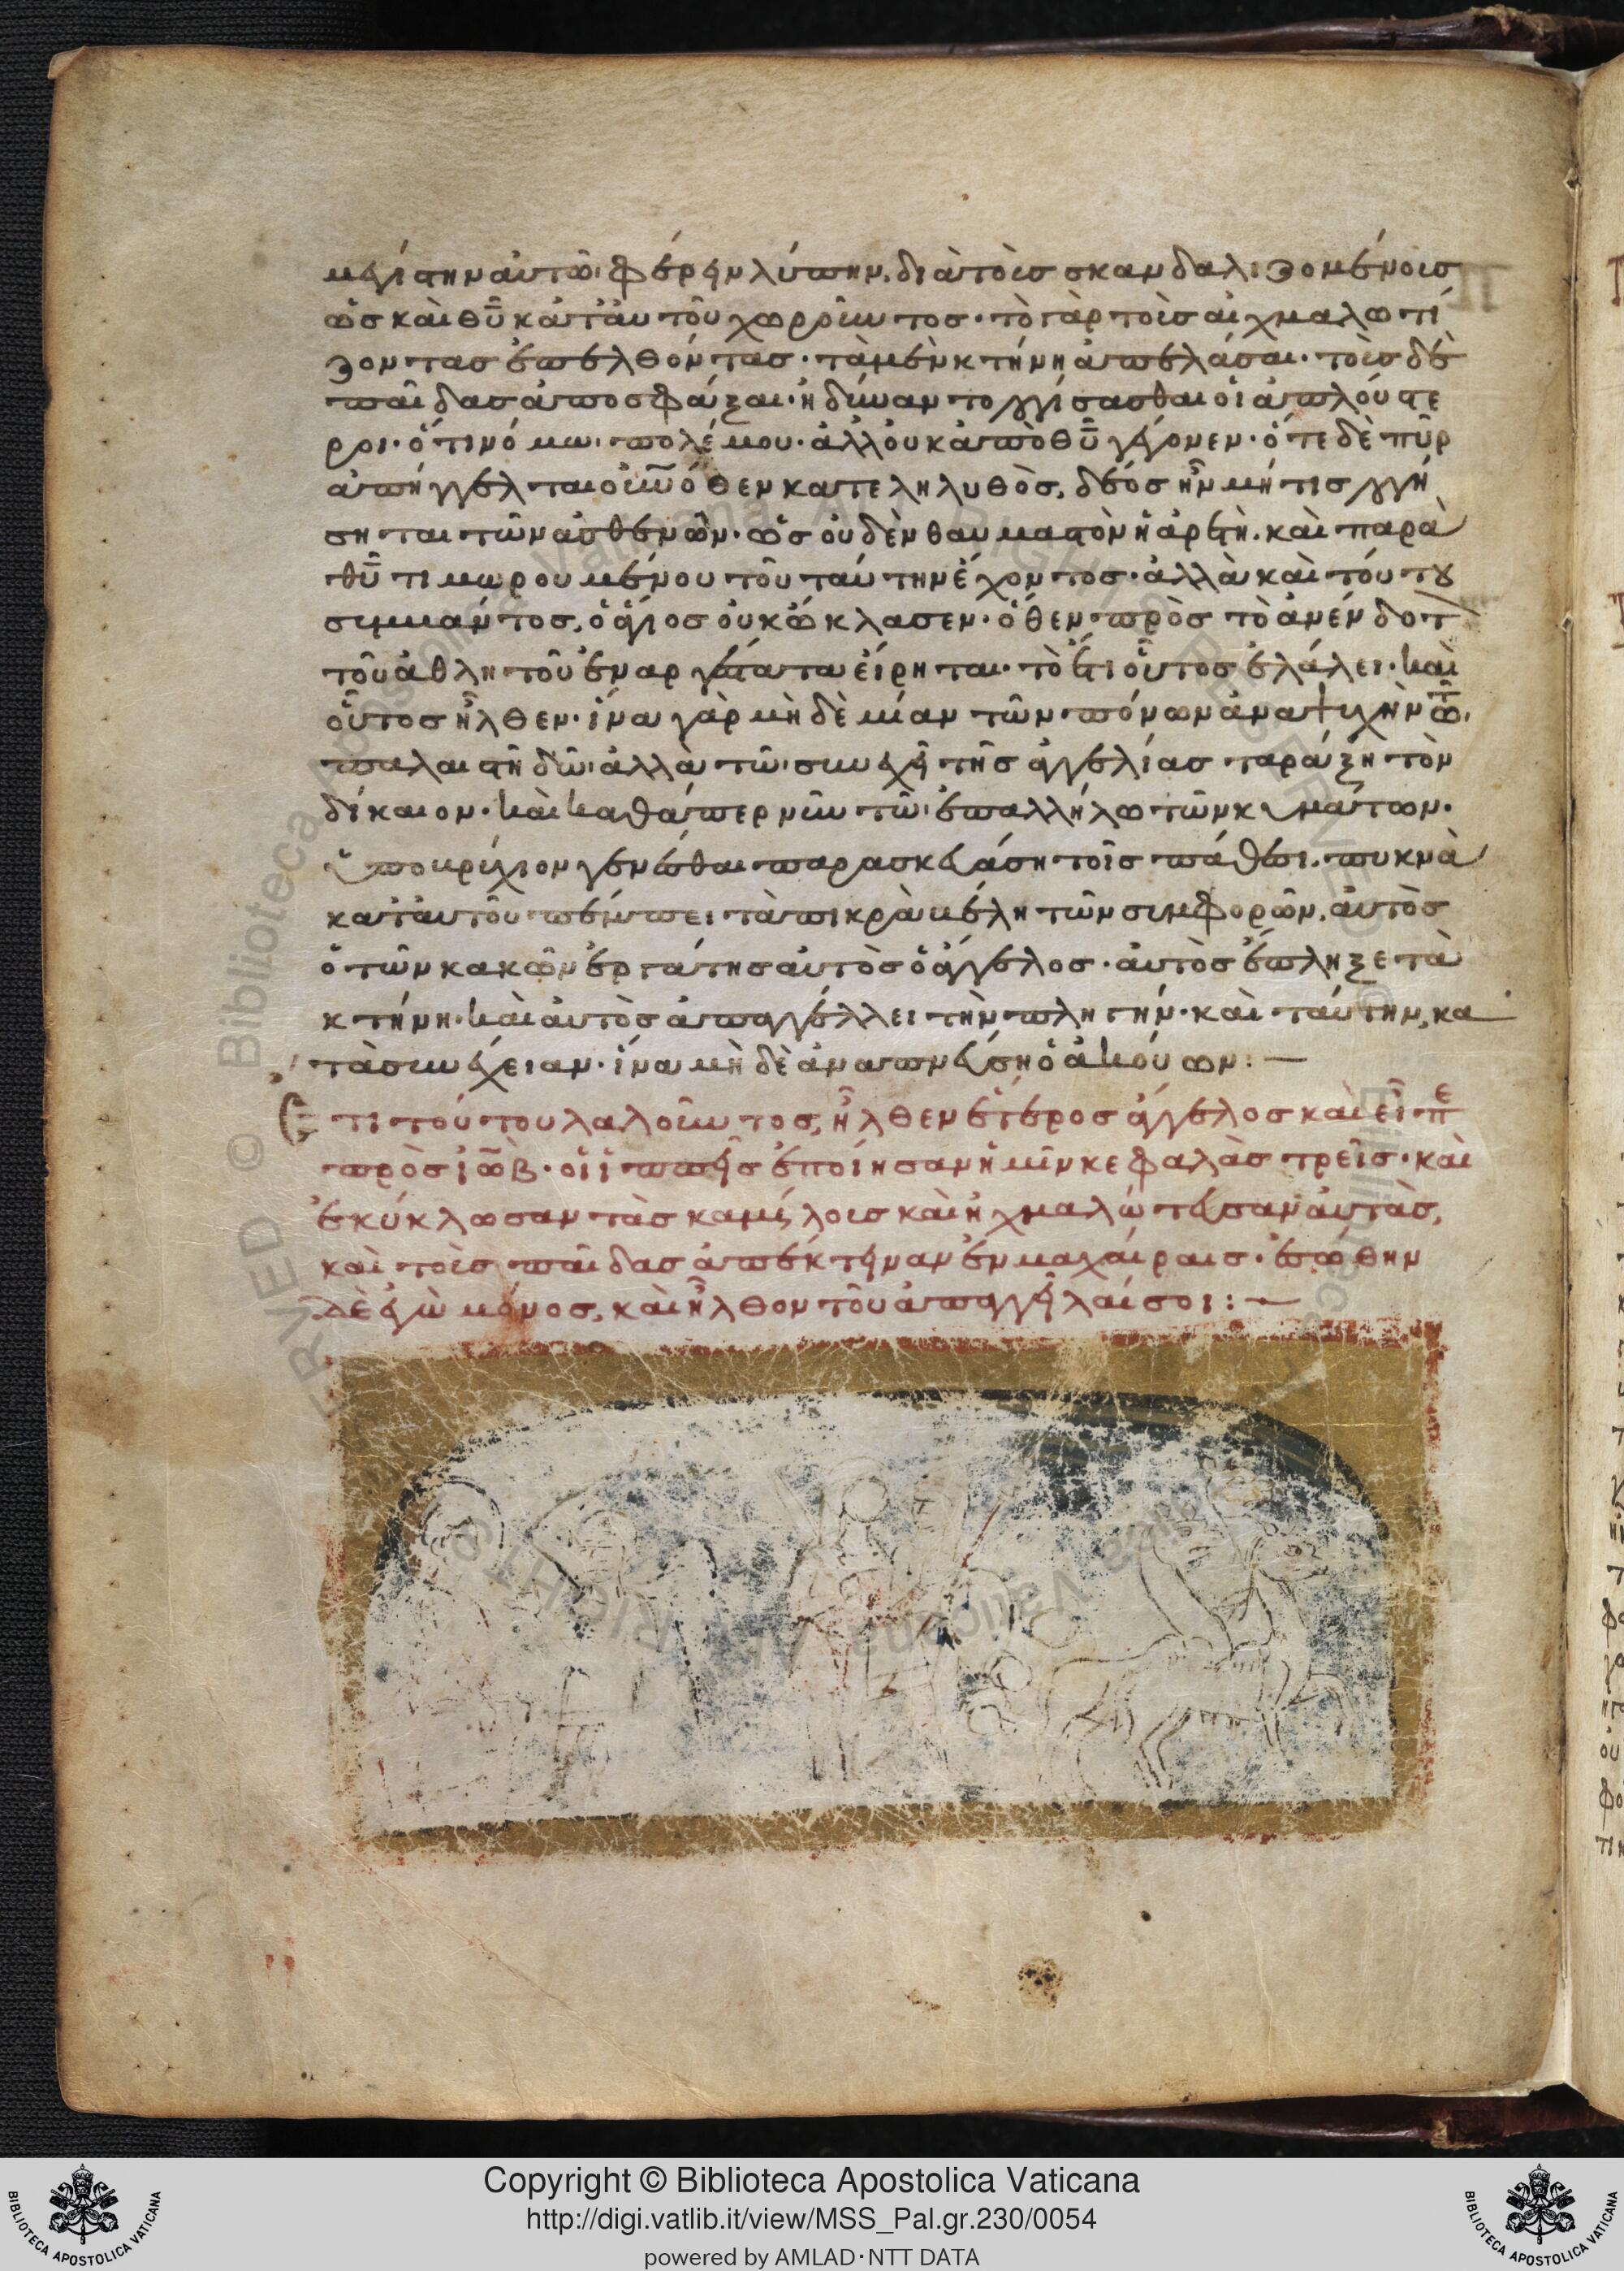 μεγίστην αὐτῶ φέρειν λύπην, διὰ τοὺς σκανδαλιζομένους
ὡς καὶ θῦ κατ' αὐτοῦ χωροῦντος· τὸ γὰρ τοὺς αἰχμαλωτί
ζοντας ἐπελθόντας· τὰ μὲν κτήνη ἀπελάσαι· τοὺς δὲ
παῖδας ἀποσφάξαι· ἠδύναντο λογίσασθαι οἱ ἁπλούστε
ροι· ὅτι νόμω πολέμου· ἀλλ' οὐκ ἀπὸ θῦ γέγονεν· ὅτε δὲ πῦρ
ἀπήγγελται οὐνόθεν κατεληλυθὸς, δέος ἦν μήτις ἡγή
σηται τῶν ἀσθενῶν· ὡς οὐδὲν θαυμαστὸν ἡ ἀρετὴ. καὶ παρὰ
θῦ τιμωρουμένου τοῦ ταύτην ἔχοντος· ἀλλὰ καὶ τούτου
συμβάντος, ὁ ἅγιος οὐκ ὤκλασεν· ὅθεν πρὸς τὸ ἀνένδοτ
τοῦ ἀθλητοῦ ἐναργέστατα εἴρηται· τὸ ἔτι οὗτος ἐλάλει· καὶ
οὗτος ἦλθεν· ἵνα γὰρ μὴ δὲ μίαν τῶν πόνων ἀναψυχὴν τῶ
παλαιστῆ δῶ· ἀλλὰ τῶ συνεχεῖ τῆς ἀγγελίας ταράξη τὸν
δίκαιον· καὶ καθάπερ νῦν τῶ ἐπαλλήλω τῶν κυμάτων·
ὑποβρύχιον γενέσθαι παρασκευάση τοῖς πάθεσι. πυκνὰ
κατ' αὐτοῦ πέμπει τὰ πικρὰ βέλη τῶν συμφορῶν, αὐτὸς
ὁ τῶν κακῶν ἐργάτης αὐτὸς ὁ ἄγγελος· αὐτὸς ἔπληξε τὰ
κτήνη· καὶ αὐτὸς ἀπαγγέλλει τὴν πληγήν· καὶ ταύτην, κα
τὰ συνέχειαν· ἵνα μὴ δὲ ἀναπνεύση ὁ ἀκούων:—
Ἔτι τούτου λαλοῦντος, ἦλθεν ἕτερος ἄγγελος καὶ εἶπε
πρὸς ἰώβ· οἱ ἱππεῖς ἐποίησαν ἡμῖν κεφαλὰς τρεῖς· καὶ
ἐκύκλωσαν τὰς καμήλους καὶ ἠχμαλώτευσαν αὐτὰς,
καὶ τοὺς παῖδας ἀπέκτειναν ἐν μαχαίραις· ἐσώθην
δὲ ἐγὼ μόνος, καὶ ἦλθον τοῦ ἀπαγγεῖλαί σοι:—
Copyright © Biblioteca Apostolica Vaticana
http://digi.vatlib.it/view/MSS_Pal.gr.230/0054
powered by AMLAD·NTT DATA
BIBLIOTECA APOSTOLICA VATICANA
BIBLIOTECA APOSTOLICA VATICANA